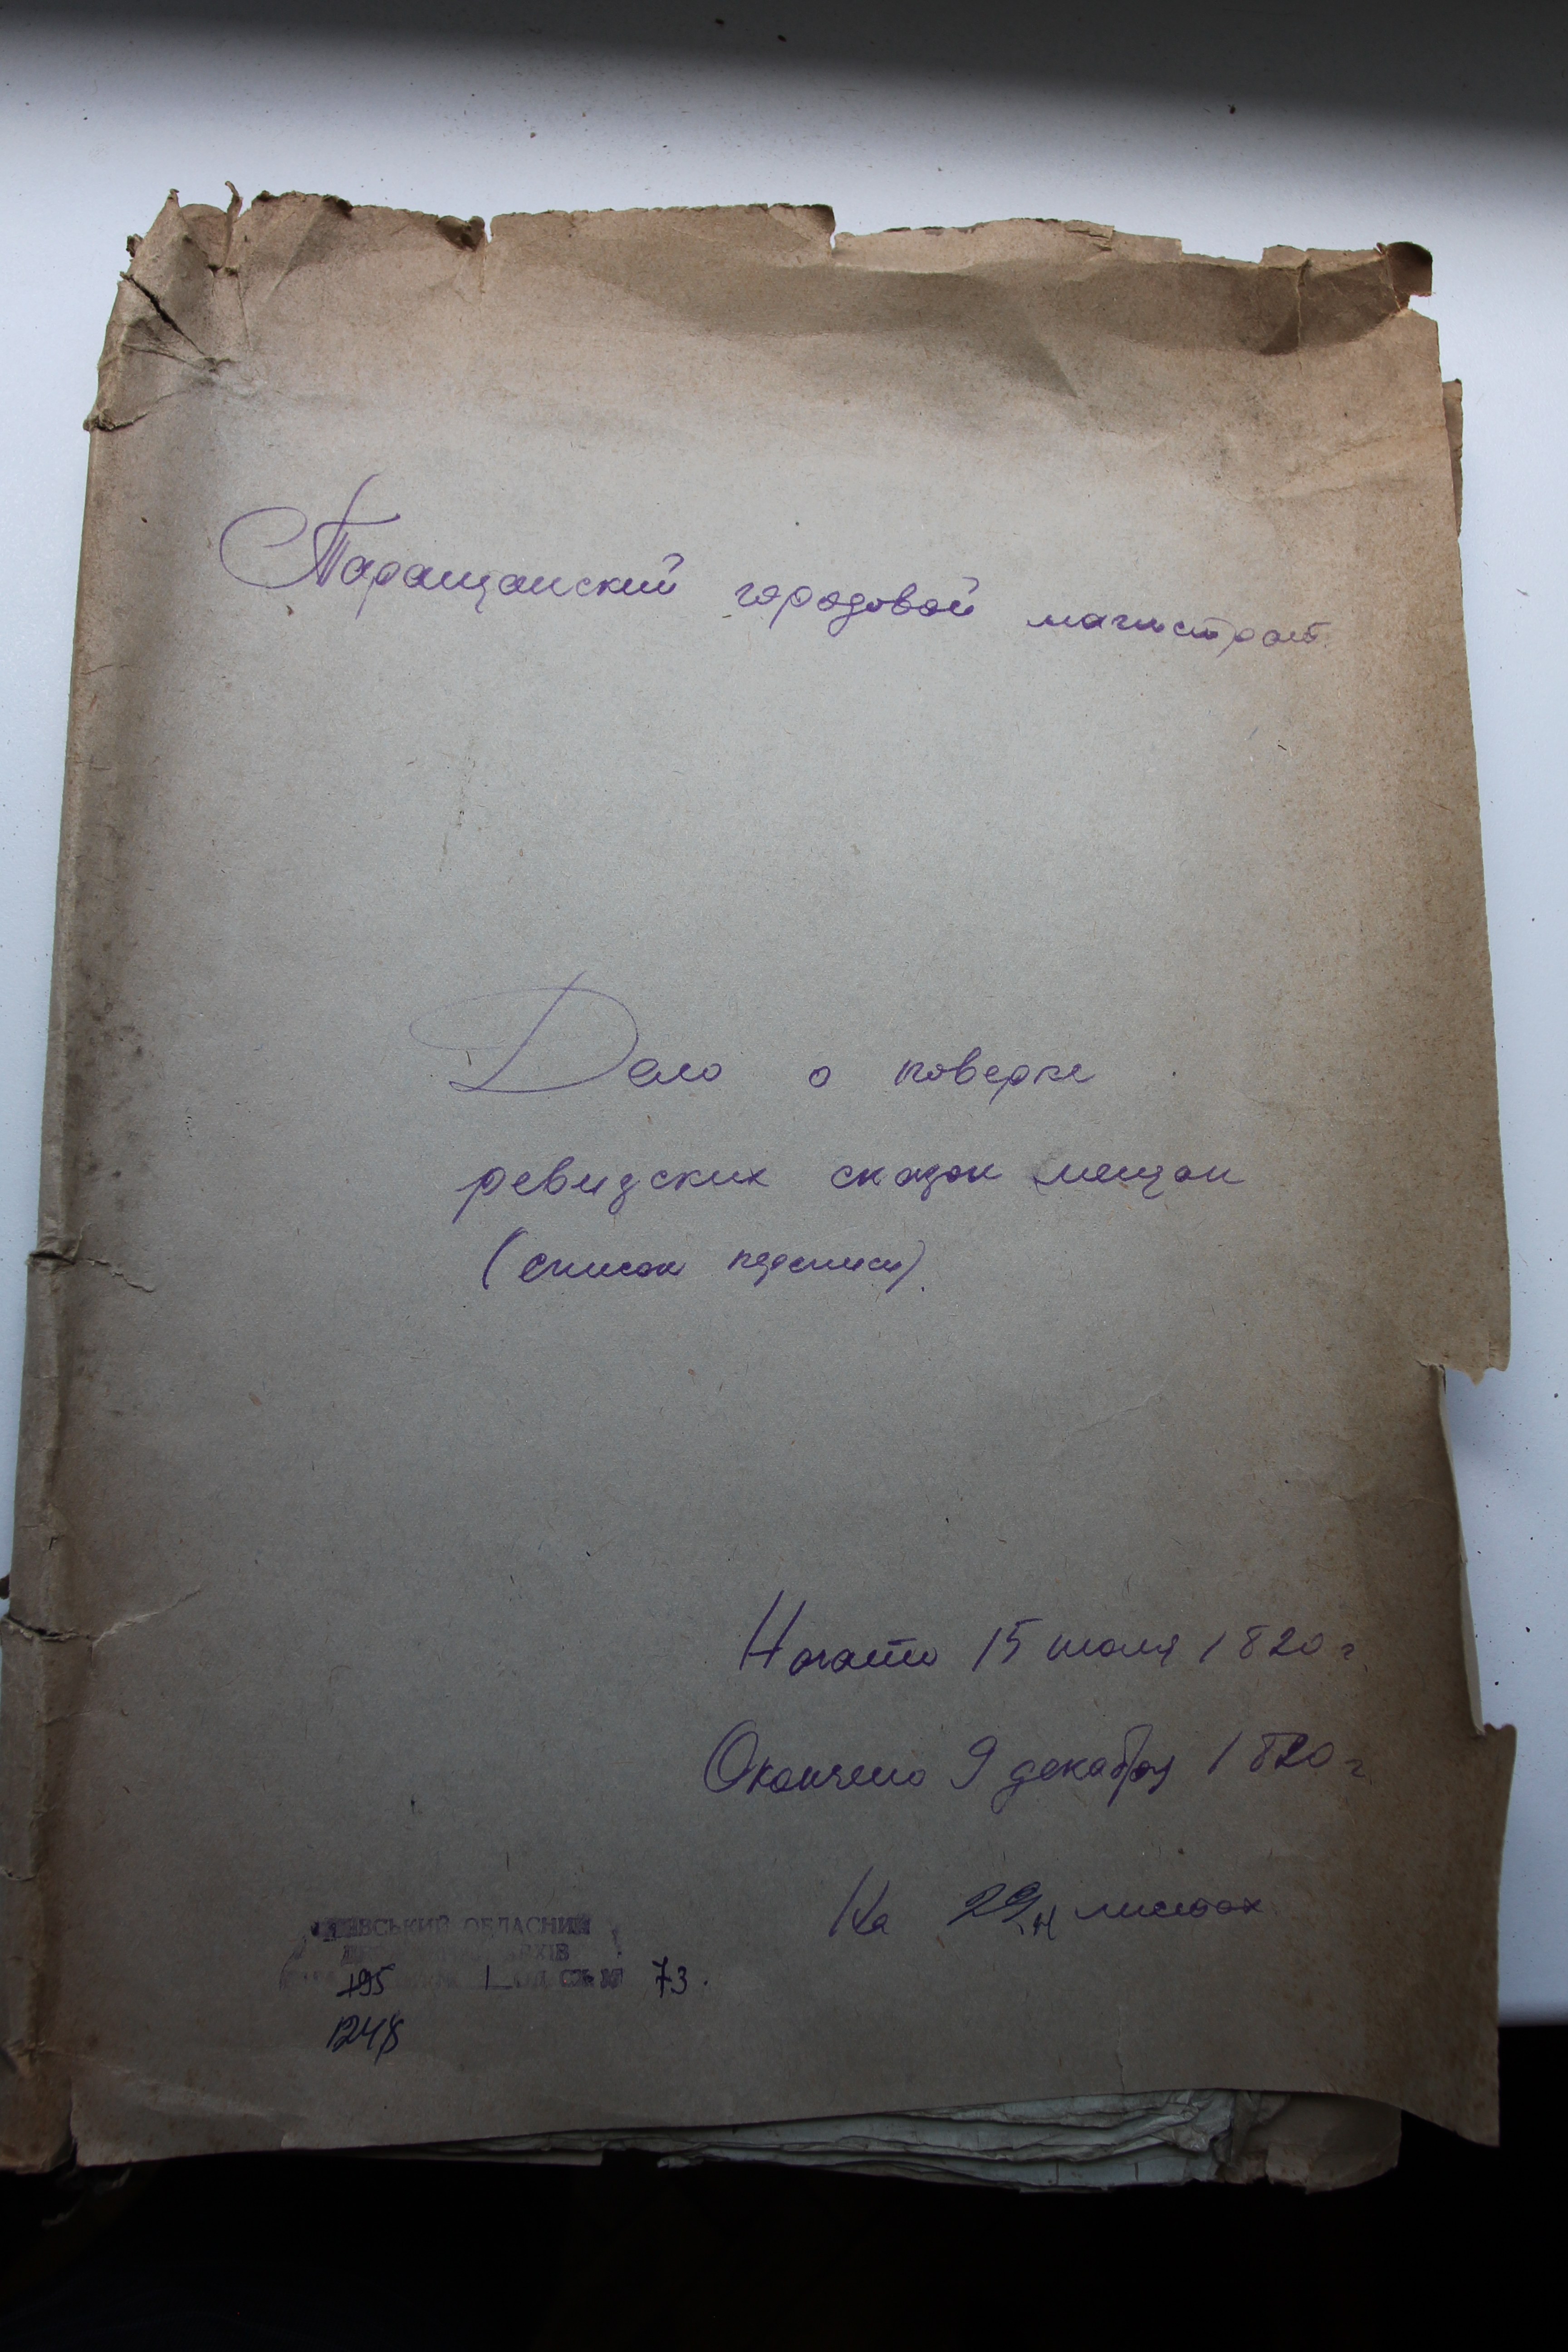 Таращанский городовой магистрат.
Дело о поверке
ревизских сказок мещан
(список переписи).
Начато 15 июля 1820 г.
Окончено 9 декабря 1820 г.
На 29 листах
ОБЛАСНИЙ
АРХІВ
1 73.
1248